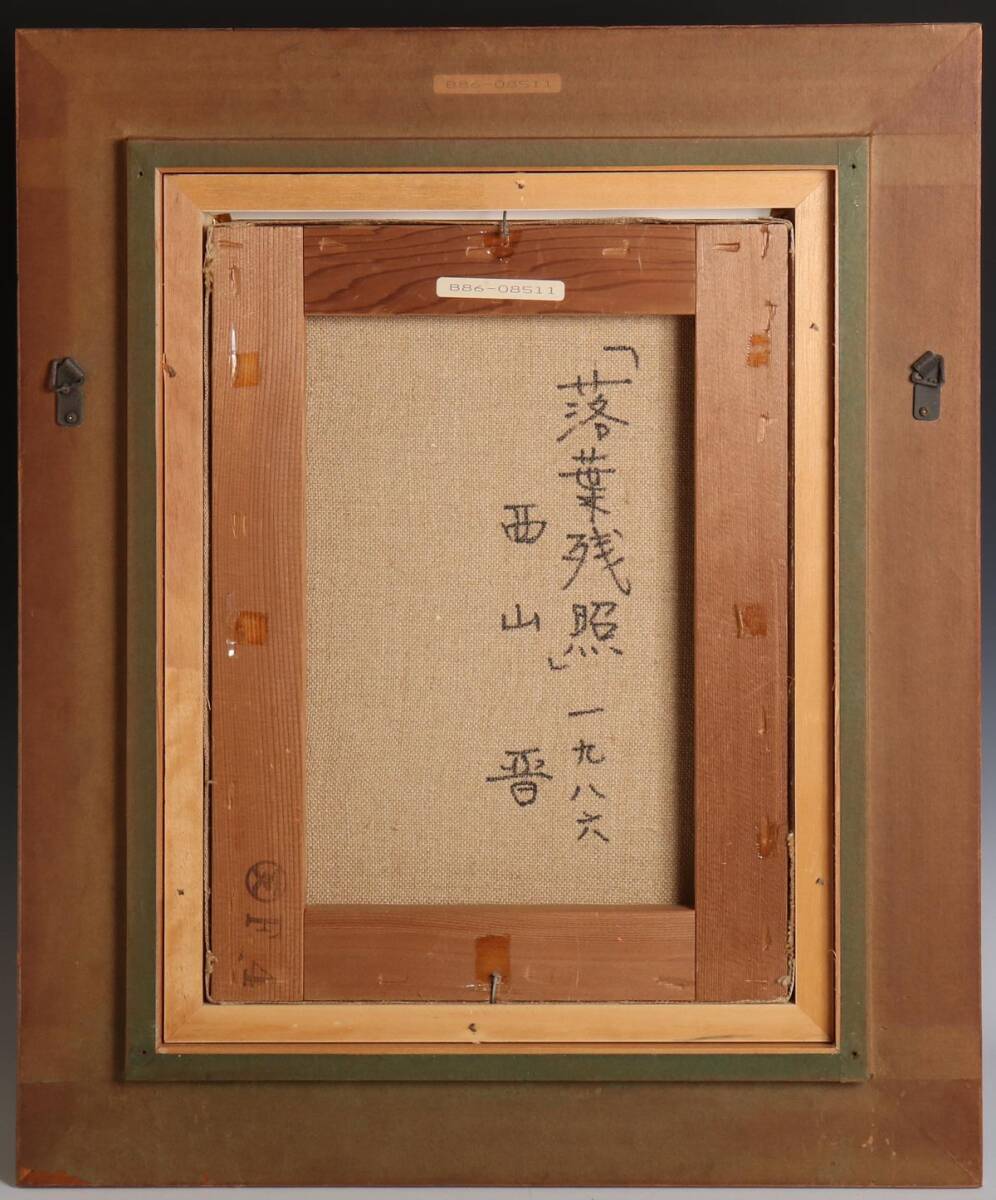 B86-08511
B86-08511
「落葉残照」一九八六
西山 晋
F4